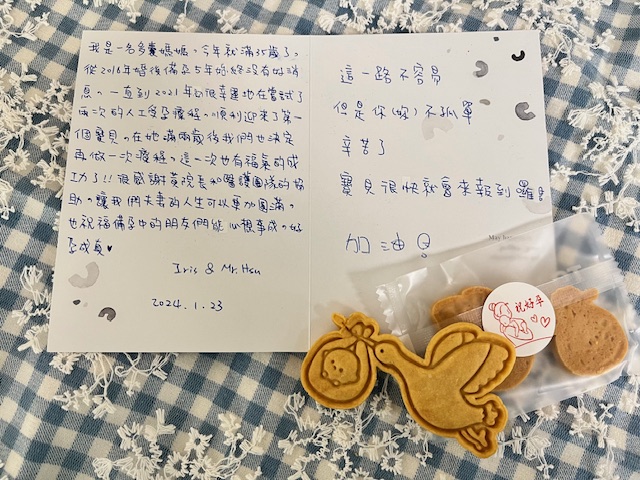 我是一名多囊媽媽。今年就滿35歲了。
從2016年婚後備孕5年始終沒有好消
息。一直到2021年初很幸運地在嘗試了
兩次的人工受孕療程。順利迎來了第一
個寶貝。在她滿兩歲後我們也決定
再做一次療程。這一次也有福氣的成
功了!!很感謝黃院長和醫護團隊的協
助。讓我們夫妻的人生可以更加圓滿。
也祝福備孕中的朋友們能心想事成。好
孕成真♥
Iris & Mr. Hsu
2024.1.23
這一路不容易
但是你(妳)不孤單
辛苦了
寶貝很快就會來報到囉!
加油!
May
祝好孕